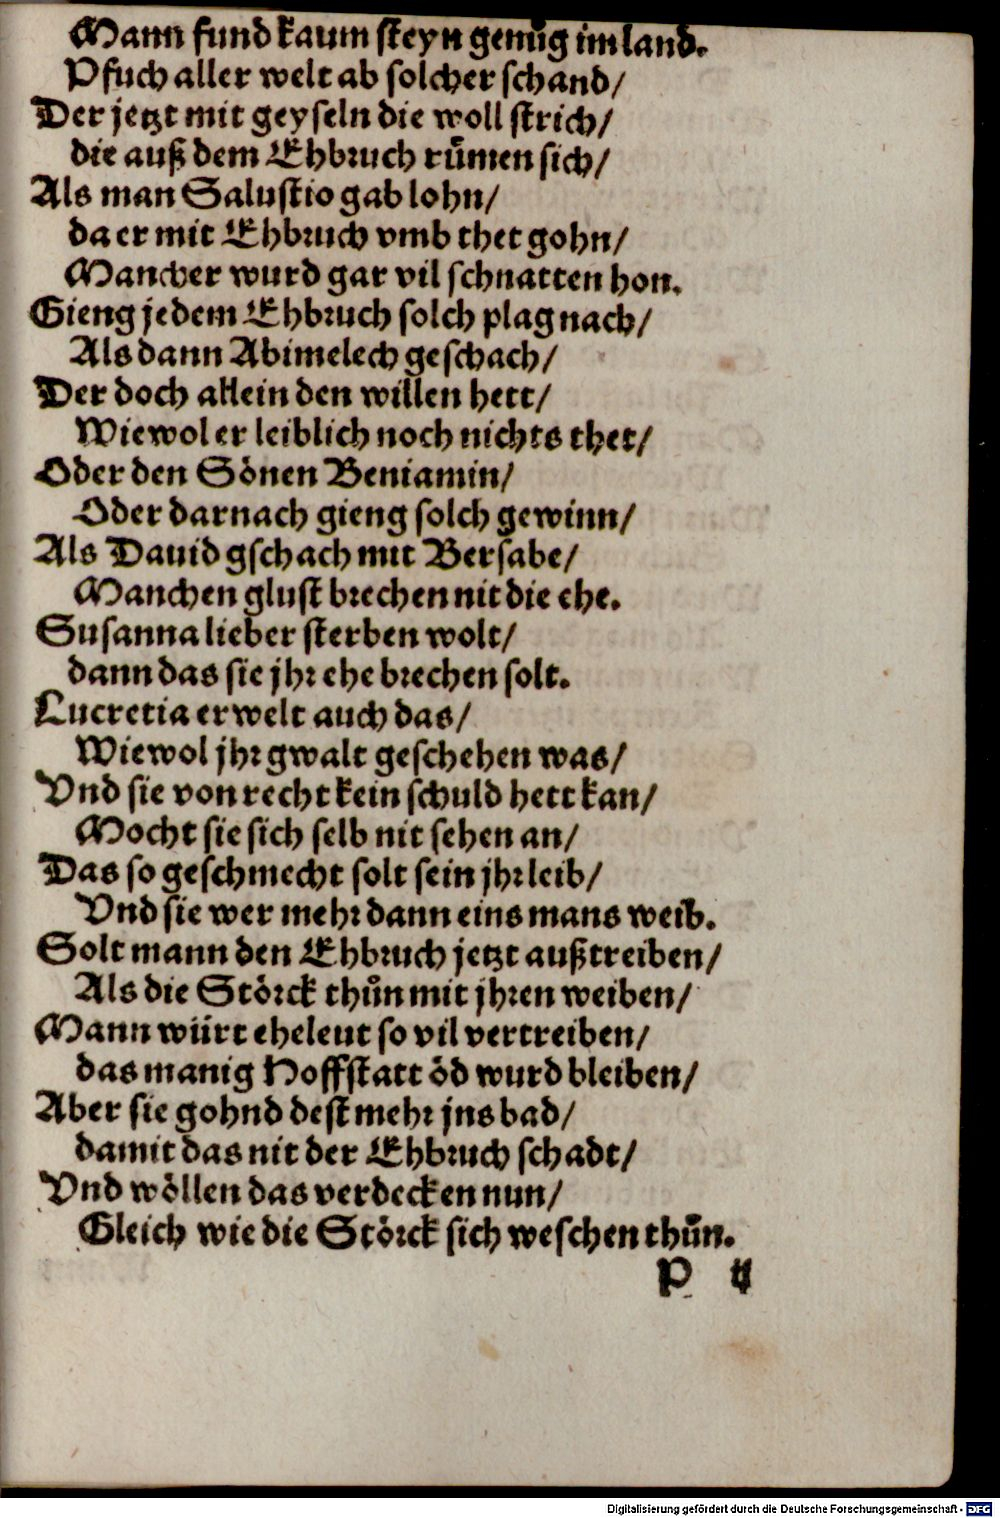 Mann fund kaum steyn genůg im land.
Pfuch aller welt ab solcher schand/
Der jetzt mit geyseln die woll strich/
die auß dem Ehbruch růmen sich/
Als man Salustio gab lohn/
da er mit Ehbruch vmb thet gohn/
Mancher wurd gar vil schnatten hon.
Gieng jedem Ehbruch solch plag nach/
Als dann Abimelech geschach/
Der doch allein den willen hett/
Wiewol er leiblich noch nichts thet/
Oder den Sönen Beniamin/
Oder darnach gieng solch gewinn/
Als Dauid gschach mit Bersabe/
Manchen glust brechen nit die ehe.
Susanna lieber sterben wolt/
dann das sie jhr ehe brechen solt.
Lucretia erwelt auch das/
Wiewol jhr gwalt geschehen was/
Vnd sie von recht kein schuld hett kan/
Mocht sie sich selb nit sehen an/
Das so geschmecht solt sein jhr leib/
Vnd sie wer mehr dann eins mans weib.
Solt mann den Ehbruch jetzt außtreiben/
Als die Störck thůn mit jhren weiben/
Mann würt eheleut so vil vertreiben/
das manig Hoffstatt öd wurd bleiben/
Aber sie gohnd dest mehr jns bad/
damit das nit der Ehbruch schadt/
Vnd wöllen das verdecken nun/
Gleich wie die Störck sich weschen thůn.
P ij
Digitalisierung gefördert durch die Deutsche Forschungsgemeinschaft - DFG